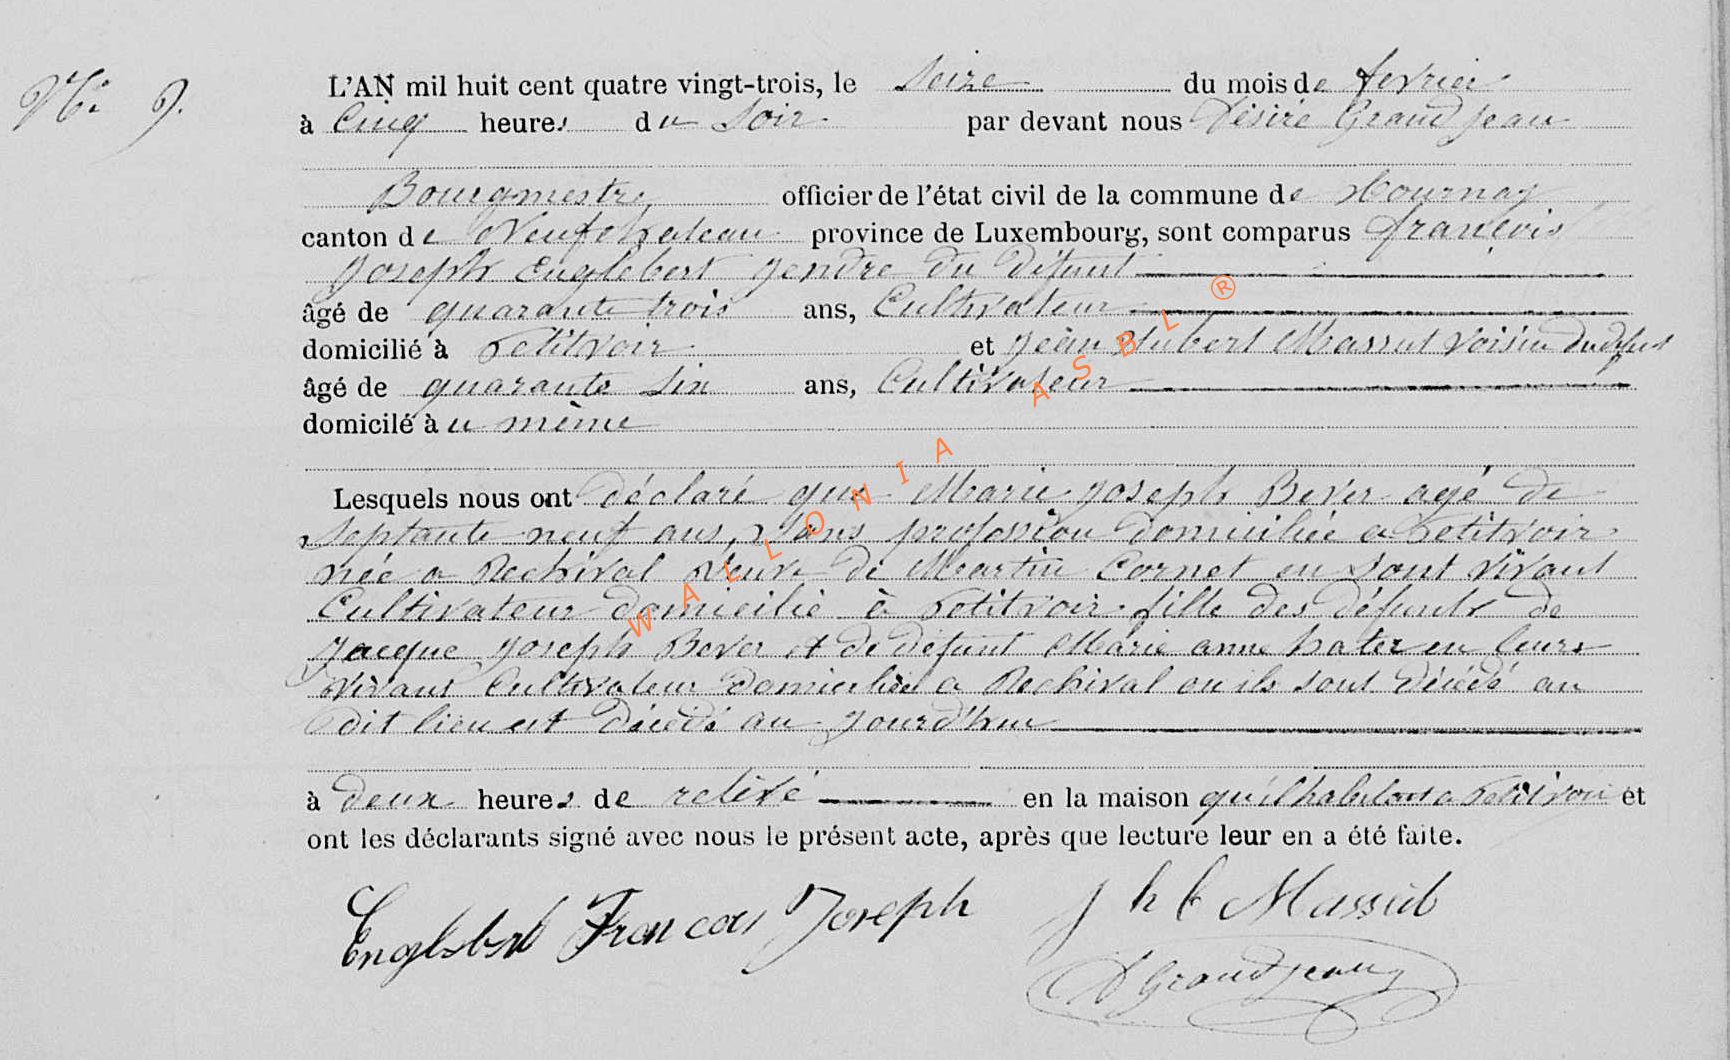 No 9.
L'AN mil huit cent quatre vingt-trois, le Seize du mois de fevrier
à Cinq heures du Soir par devant nous Désiré Grandjean
Bourgmestre officier de l'état civil de la commune de Tournay
canton de Neufchateau province de Luxembourg, sont comparus francois
Joseph Englebert gendre du défunt
âgé de quarante trois ans, Cultivateur
domicilié à petitvoir et Jean hubert Massut voisin du defunt
âgé de quarante six ans, Cultivateur
domicilé à u même
Lesquels nous ont déclaré que Marie Joseph Bever agé de
Septante neuf ans, Sans profession domiciliée a petitvoir
née a Rechival Veuve de Martin Cornet en sont vivant
Cultivateur domicilié à petitvoir fille des défunts de
Jacque Joseph Bever et de défunt Marie anne hater en leurs
vivant Cultivateur domiciliée a Rechival ou ils sont décédé au
dit lieu est décédé au jourd'hui
à deux heures de relevé en la maison qu'il habitant a petitvoir et
ont les déclarants signé avec nous le présent acte, après que lecture leur en a été faite.
Englebert Francois Joseph J h b Massut
D Grandjean
WALLONIA ASBL ®